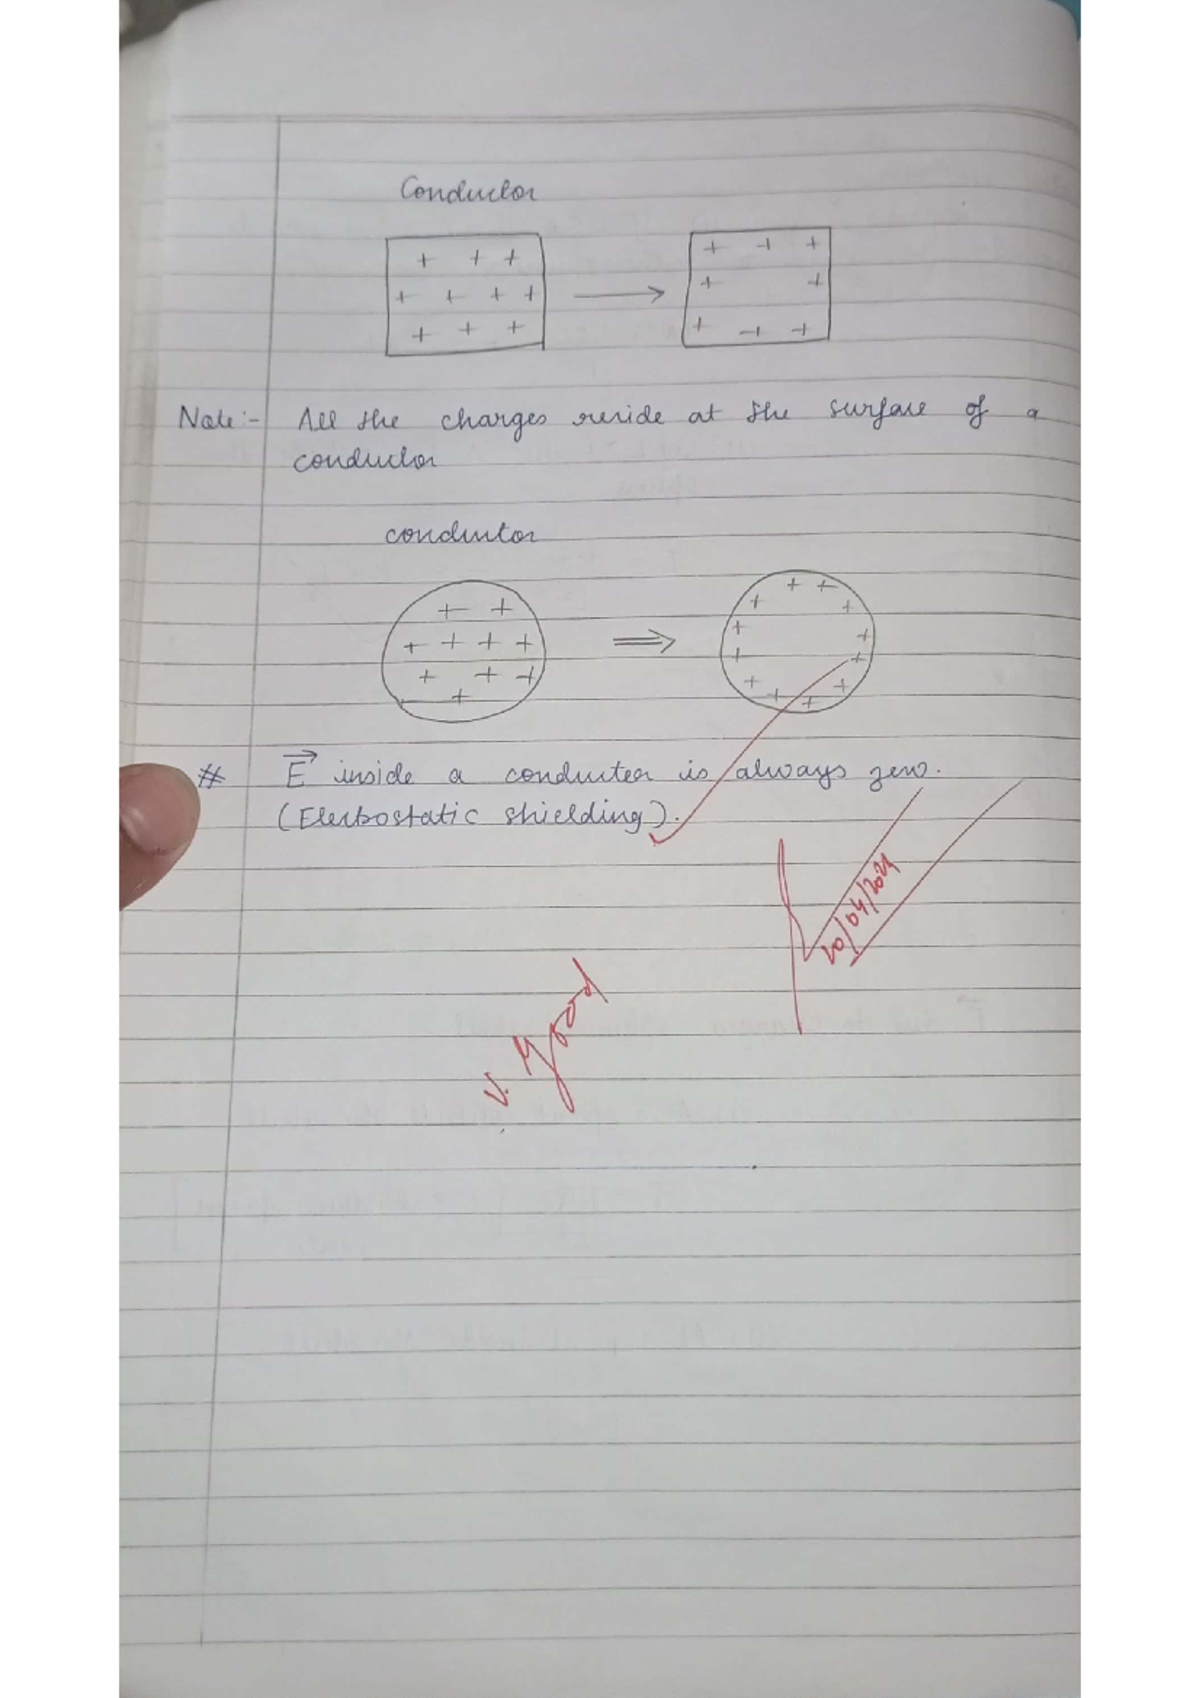 Conductor
+ + +
+ + + +
+ + +
+ + +
+ +
+ + +
Note:- All the charges reside at the surface of a
conductor
conductor
+ +
+ + + +
+ + +
+
+ +
+ +
+ +
+ +
+ +
+ +
+
# E⃗ inside a conductor is always zero.
(Electrostatic shielding).
20/04/2024
V. good